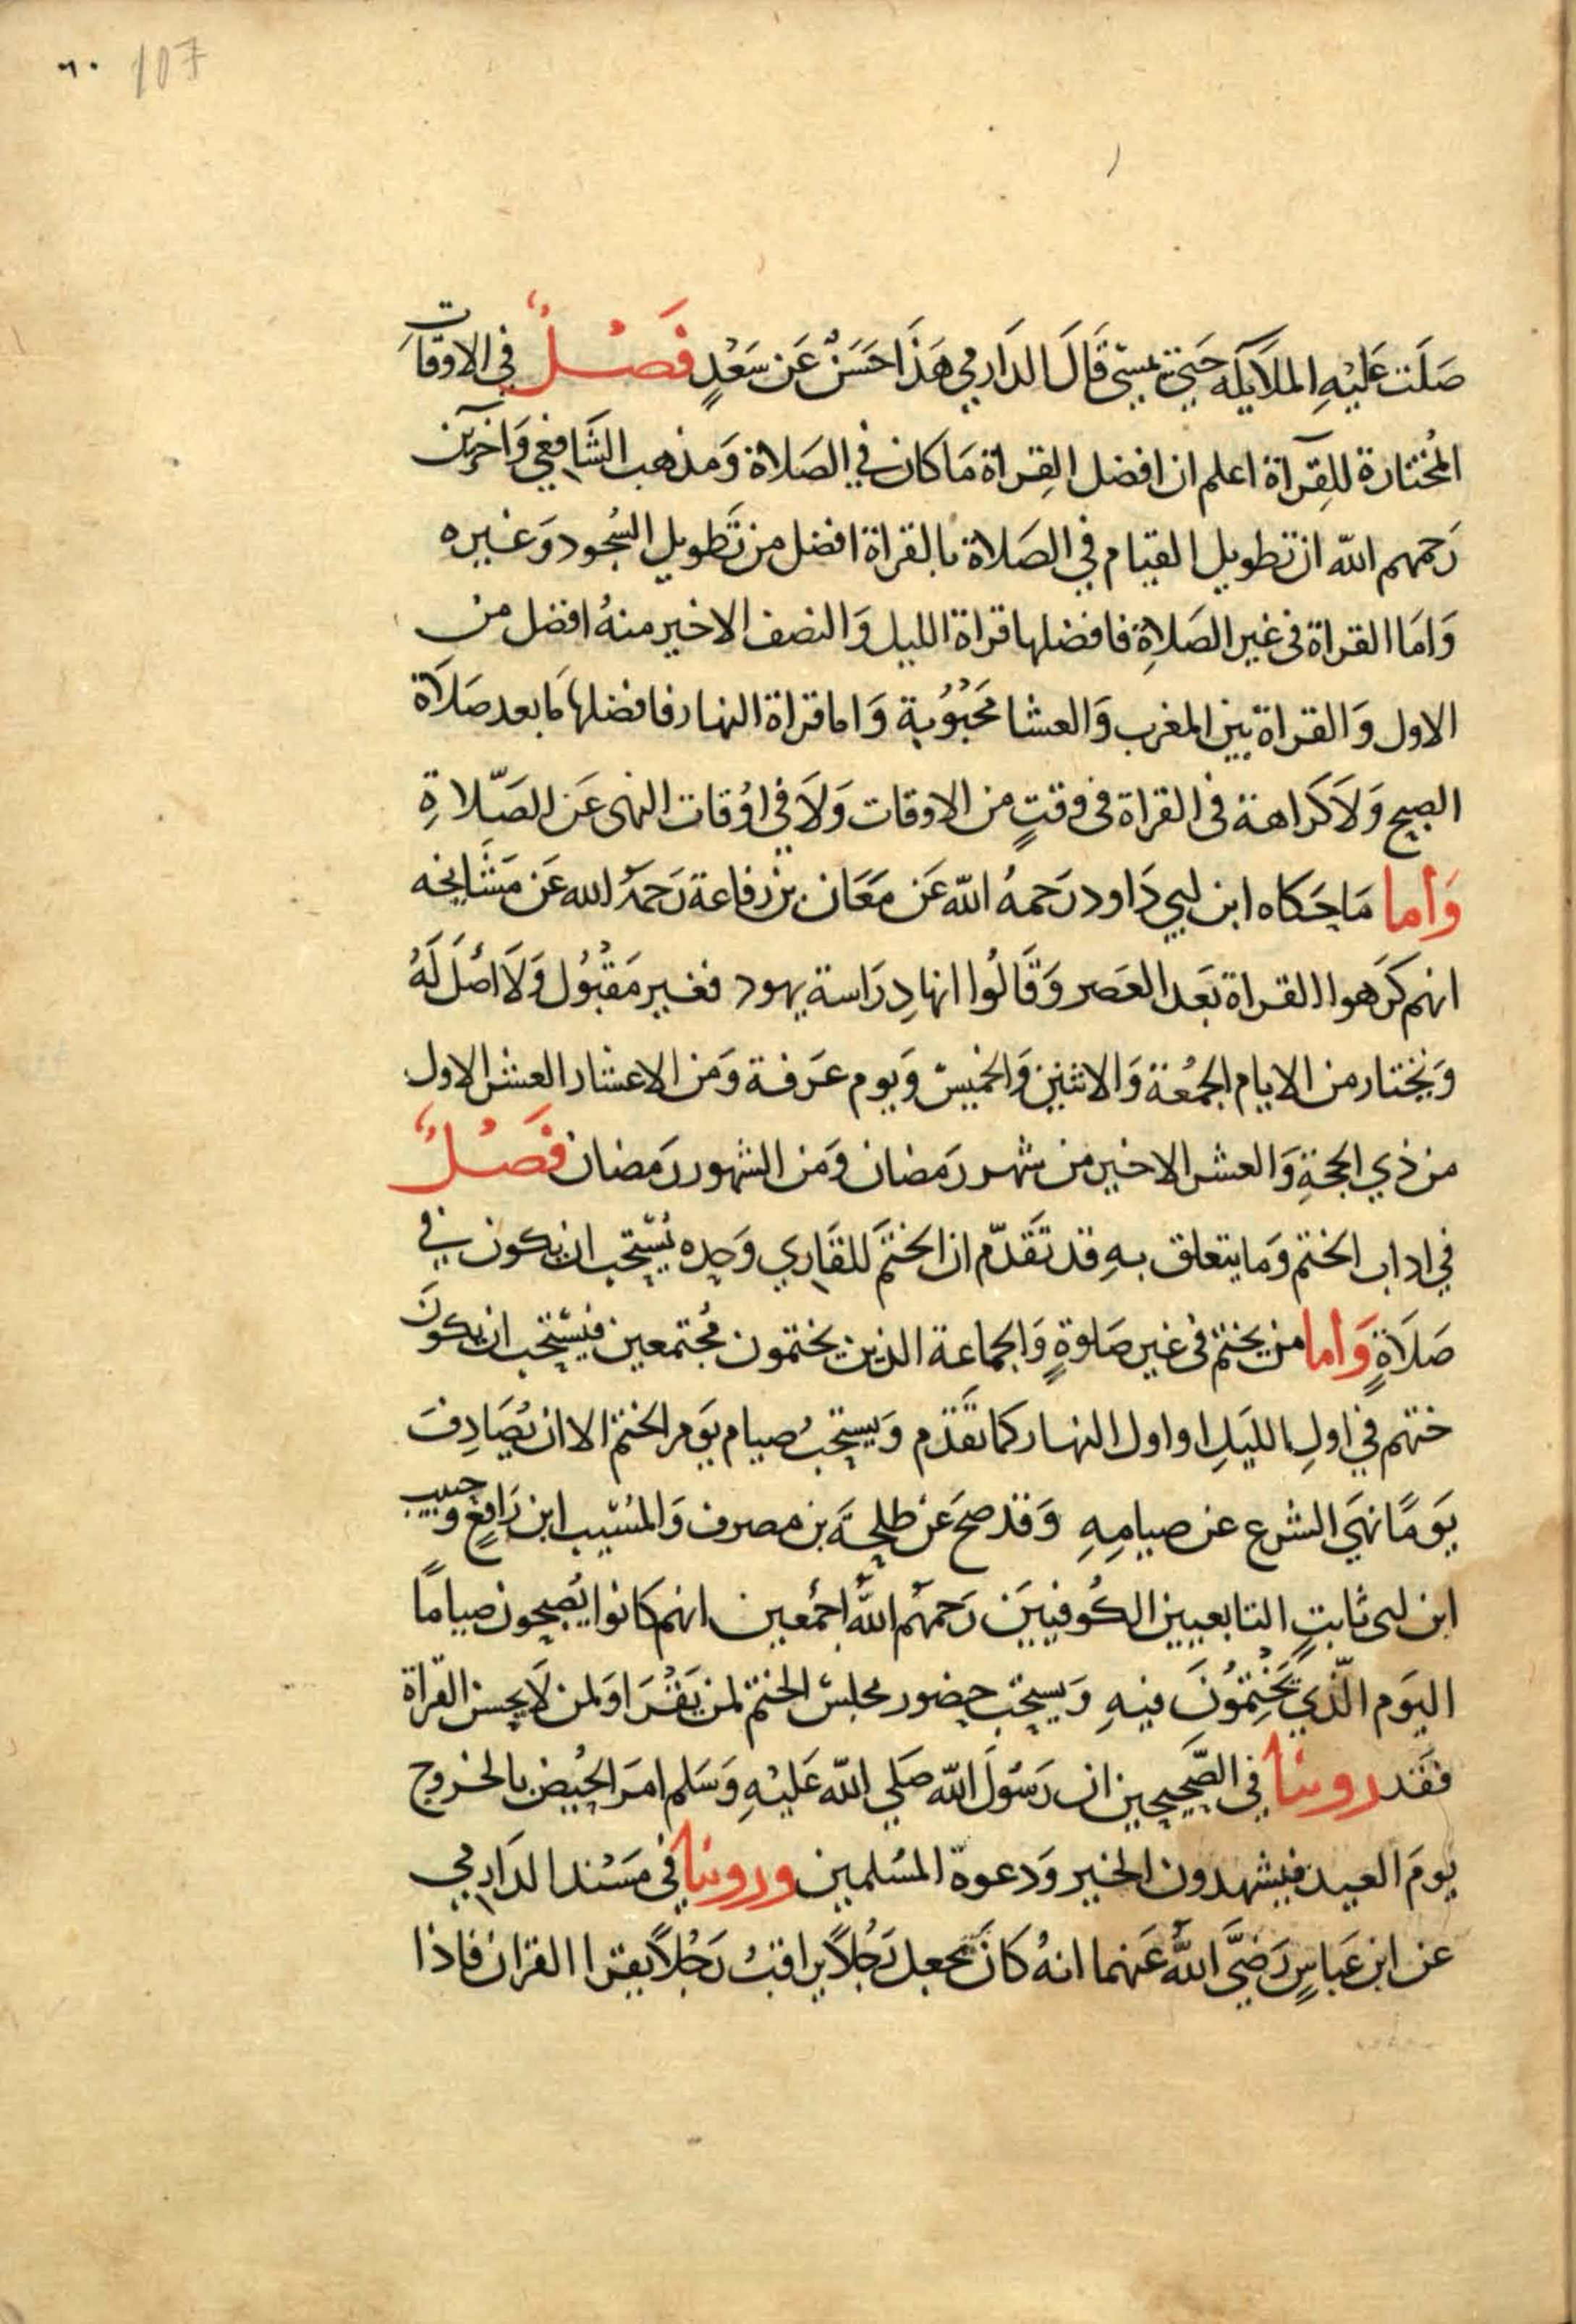 ٦٠ 107
صَلَت عَلَيْهِ الملَايكَه حَتي يمسَي قَالَ الدَارمي هَذَا حَسَنٌ عَن سَعْدٍ فَصْلٌ في الاوقات
المُختارة للقِرآة اعلم ان افضل القِراة مَا كان في الصَلاة وَمذهب الشَافعي وَآخرين
رَحمهم الله ان تطويل القيام في الصَلاة بالقراة افضل من تَطويل السُجود وَغيره
وَامَا القراة في غير الصَلاةِ فافضلها قراة الليل وَالنصف الاخير منهُ افضل من
الاول وَالقراة بَين المغرب وَالعشا مَحْبُوُبة وَاما قراة النهار فافضلها مَا بعد صَلَاة
الصبح وَلَا كَرَاهة في القراة في وقتٍ من الاوقات وَلَا في اوُقات النهى عَن الصَّلاةِ
وَأما مَا حَكاه ابن ابي دَاود رَحمهُ الله عَن مَعَان بن رفاعة رَحمَهُ الله عَن مَشَايخه
انهم كَرَهوا القراة بَعَد العَصر وَقَالُوا انها دِرَاسة يهود فغير مَقْبُول وَلَا اصْلَ لَهُ
وَيختار من الايام الجمُعة وَالاثنين وَالخميسْ وَيوم عَرَفة وَمن الاعشار العشر الاول
من ذي الحجةِ وَالعشر الاخير من شهر رَمضان وَمن الشهور رَمضان فَصْلٌ
في اداب الختم وَما يتعلق بهِ قد تَقَدّم ان الختَم للقَاري وَحده يُستحب ان يكون في
صَلَاةٍ وَأما من يختم في غير صَلوةٍ وَالجماعة الذين يختمون مُجتمعين فيسْتحب ان يكونَ
ختهم في اولِ الليَلِ او اول النهار كما تقَدّم وَيستحبُ صيام يَوَم الختم الا ان يُصَادِفَ
يَوَمًا نهَي الشرع عن صيامِهِ وَقد صحَ عَن طلحَة بن مصرف وَالمُسَيب ابن رَافعٍ وَحبيب
ابن ابى ثابتٍ التابعيين الكُوفيينَ رَحمهُم اللهُ اجمُعين انهم كانوا يُصبحون صيامًا
اليَوم الّذي يَخْتِمُونَ فيهِ وَيستحب حضور مجلسْ الختم لمن يَقْرَا وَلمن لَا يحسن القراة
فقَد روينا في الصَّحيحين ان رَسُولَ الله صَلي الله عَليْهِ وَسَلم امَر الحُيض بالخروج
يومَ العيد فيشهدون الخير وَدعوة المسُلمين وروينا في مَسْند الدَارمي
عن ابن عَباسٍ رَضيَّ اللهُ عَنهما انهُ كانَ يجعل رَجُلاً يراقبُ رَجُلاً يقرا القران فاذا